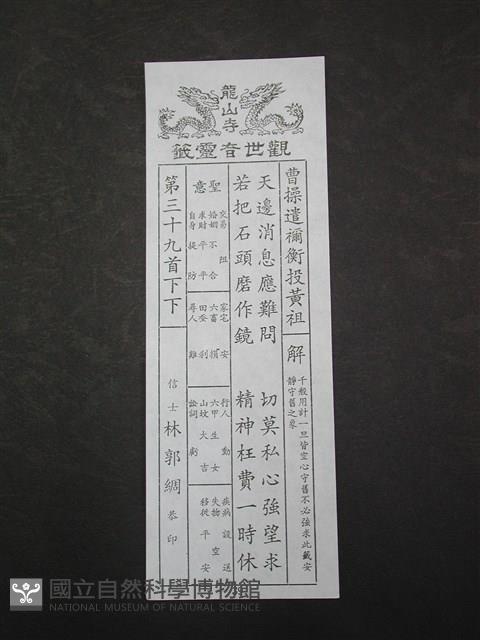 龍山寺
觀世音靈籤
曹操遣禰衡投黃祖
解
千般用計一旦皆空心守舊不必強求此籤安
靜守舊之象
天邊消息應難問 切莫私心強望求
若把石頭磨作鏡 精神枉費一時休
聖意
交易 阻
婚姻 不合
求財 平平
自身 提防
家宅 安
六畜 損
田蚕 利
尋人 難
行人 動
六甲 生女
山坟 大吉
訟詞 虧
疾病 設送
失物 空
移徙 平安
第三十九首下下
信士 林郭綢 恭印
國立自然科學博物館
NATIONAL MUSEUM OF NATURAL SCIENCE